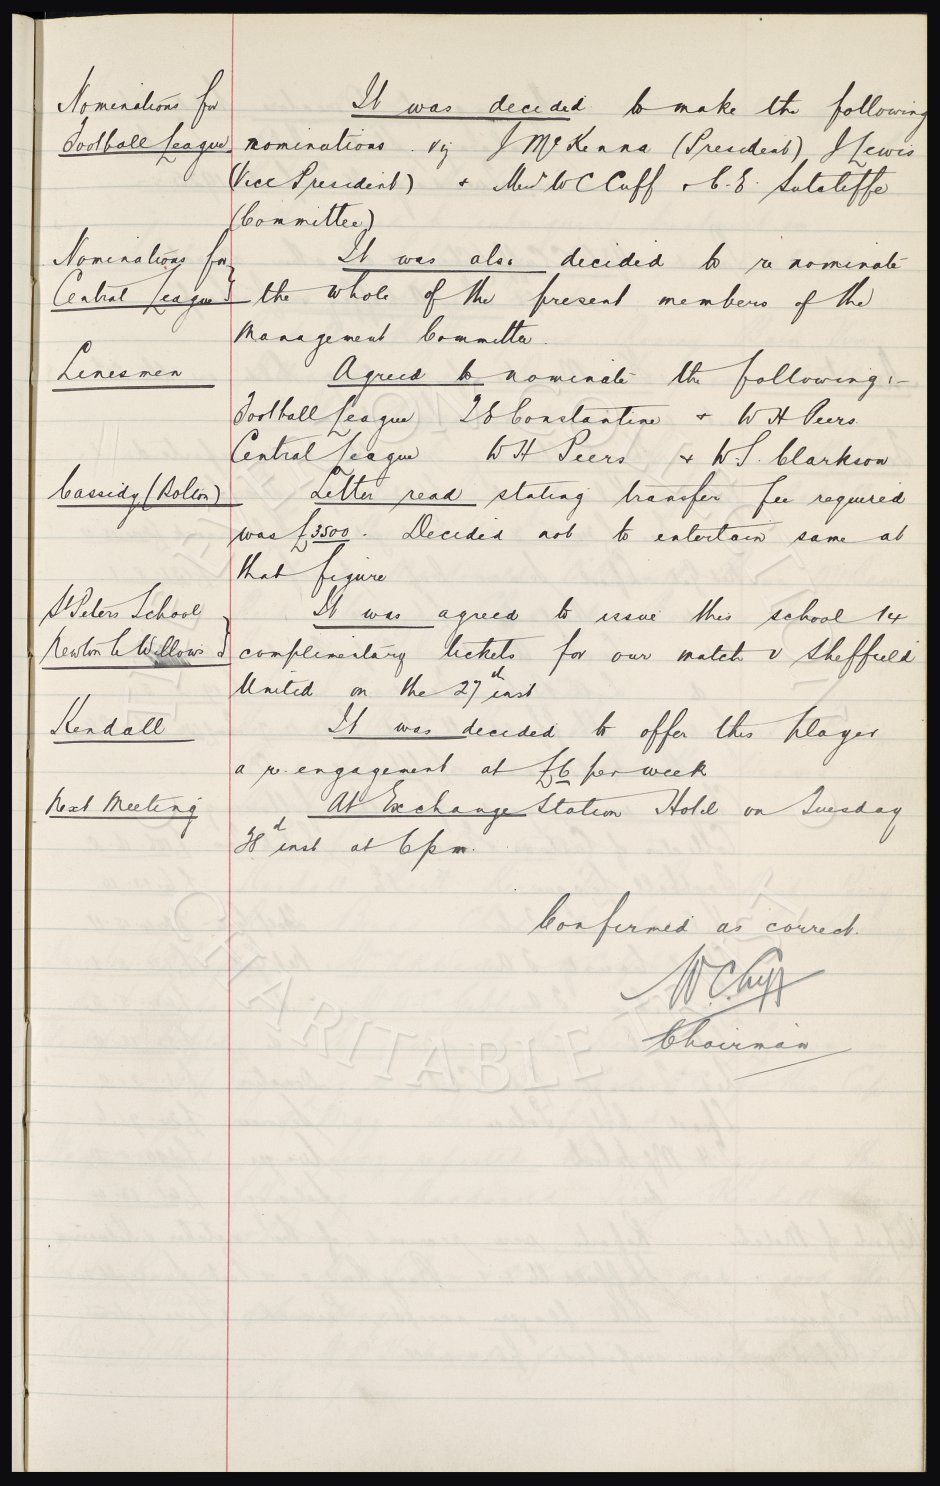 Nominations for It was decided to make the following
Football League nominations. viz J McKenna (President) J Lewis
(Vice President) + Messrs W C Cuff & C. E. Sutcliffe
(Committee)
Nominations for It was also decided to re nominate
Central League the whole of the present members of the
Management Committee.
Linesmen Agreed to nominate the following:-
Football League Constantine + W H Peers
Central League W H Peers + W. S. Clarkson
Cassidy (Bolton) Letter read stating transfer fee required
was £3500. Decided not to entertain same at
that figure
St Peters School It was agreed to issue this school 14
Newton le Willows complimentary tickets for our match v Sheffield
United on the 27d inst
Kendall It was decided to offer this player
a re-engagement at £6 per week
Next Meeting At Exchange Station Hotel on Tuesday
inst at 6 pm.
Confirmed as correct.
W. C. Cuff
Chairman
CHARITABLE